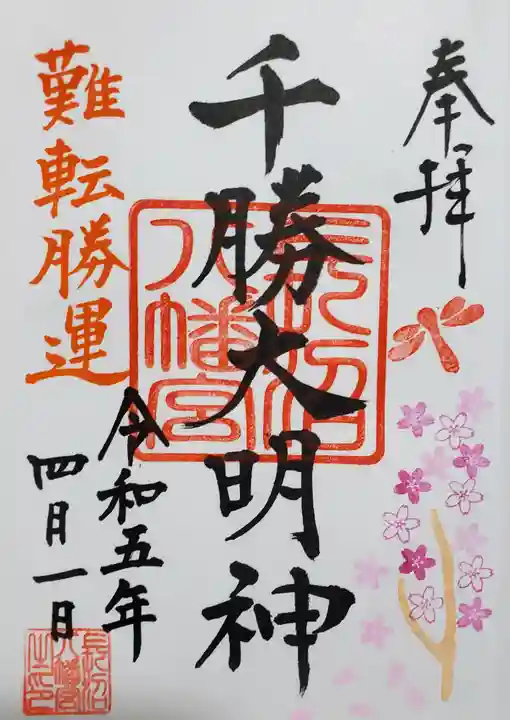 奉拝
千勝大明神
長沼
八幡宮
難転勝運
令和五年
四月一日
長沼
八幡宮
之印